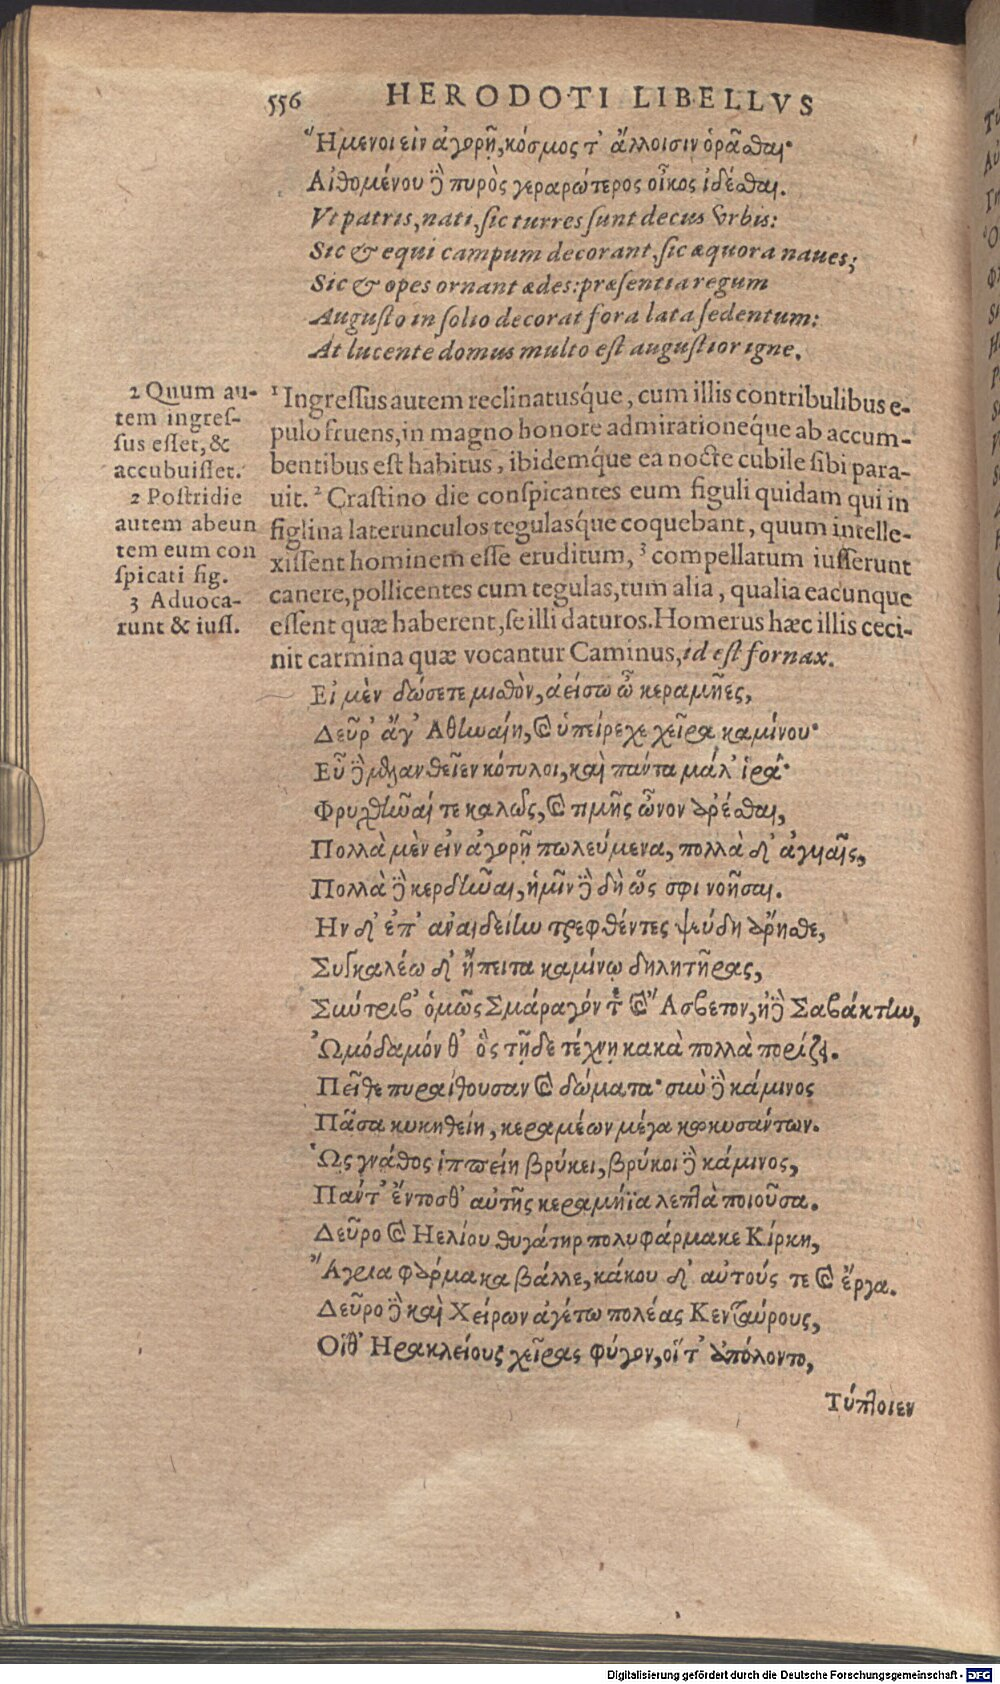 556 HERODOTI LIBELLVS
Ἥμενοι εἰν ἀγορῇ, κόσμος τ' ἄλλοισιν ὁρᾶσθαι·
Αἰθομένου δὲ πυρὸς γεραρώτερος οἶκος ἰδέσθαι.
Vt patris, nati, sic turres sunt decus vrbis:
Sic & equi campum decorant, sic æquora naues;
Sic & opes ornant ædes: præsentia regum
Augusto in solio decorat fora lata sedentum:
At lucente domus multo est augustior igne.
2 Quum au-
tem ingres-
sus esset, &
accubuisset.
2 Postridie
autem abeun
tem eum con
spicati fig.
3 Aduoca-
runt & iuss.
¹ Ingressus autem reclinatusque, cum illis contribulibus e-
pulo fruens, in magno honore admirationeque ab accum-
bentibus est habitus, ibidemque ea nocte cubile sibi para-
uit. ² Crastino die conspicantes eum figuli quidam qui in
figlina laterunculos tegulasque coquebant, quum intelle-
xissent hominem esse eruditum, ³ compellatum iusserunt
canere, pollicentes cum tegulas, tum alia, qualia eacunque
essent quæ haberent, se illi daturos. Homerus hæc illis ceci-
nit carmina quæ vocantur Caminus, id est fornax.
Εἰ μὲν δώσετε μισθὸν, ἀείσω ὦ κεραμῆες,
Δεῦρ' ἄγ' Ἀθηναίη, καὶ ὑπείρεχε χεῖρα καμίνου·
Εὖ δὲ μελανθεῖεν κότυλοι, καὶ πάντα μάλ' ἱρά·
Φρυχθῆναί τε καλῶς, καὶ τιμῆς ὦνον ἀρέσθαι,
Πολλὰ μὲν εἰν ἀγορῇ πωλεύμενα, πολλὰ δ' ἀγυιαῖς,
Πολλὰ δὲ κερδῆναι, ἡμῖν δὲ δὴ ὥς σφι νοῆσαι.
Ην δ' ἐπ' ἀναιδείην τρεφθέντες ψεύδη ἄρησθε,
Συγκαλέω δ' ἤπειτα καμίνῳ δηλητῆρας,
Σύντριβ' ὁμῶς Σμάραγόν τε καὶ Ἄσβετον, ἠδὲ Σαβάκτην,
Ὠμόδαμόν θ' ὃς τῇδε τέχνῃ κακὰ πολλὰ πορίζει.
Πεῖθε πυραίθουσαν καὶ δώματα· σὺν δὲ κάμινος
Πᾶσα κυκηθείη, κεραμέων μέγα κωκυσάντων.
Ὡς γνάθος ἱππείη βρύκει, βρύκοι δὲ κάμινος,
Πάντ' ἔντοσθ' αὐτῆς κεραμήϊα λεπτὰ ποιοῦσα.
Δεῦρο καὶ Ηελίου θυγάτηρ πολυφάρμακε Κίρκη,
Ἄγρια φάρμακα βάλλε, κάκου δ' αὐτούς τε καὶ ἔργα.
Δεῦρο δὲ καὶ Χείρων ἀγέτω πολέας Κενταύρους,
Οἵθ' Ηρακλείους χεῖρας φύγον, οἵ τ' ἀπόλοντο,
Τύπτοιεν
Digitalisierung gefördert durch die Deutsche Forschungsgemeinschaft - DFG